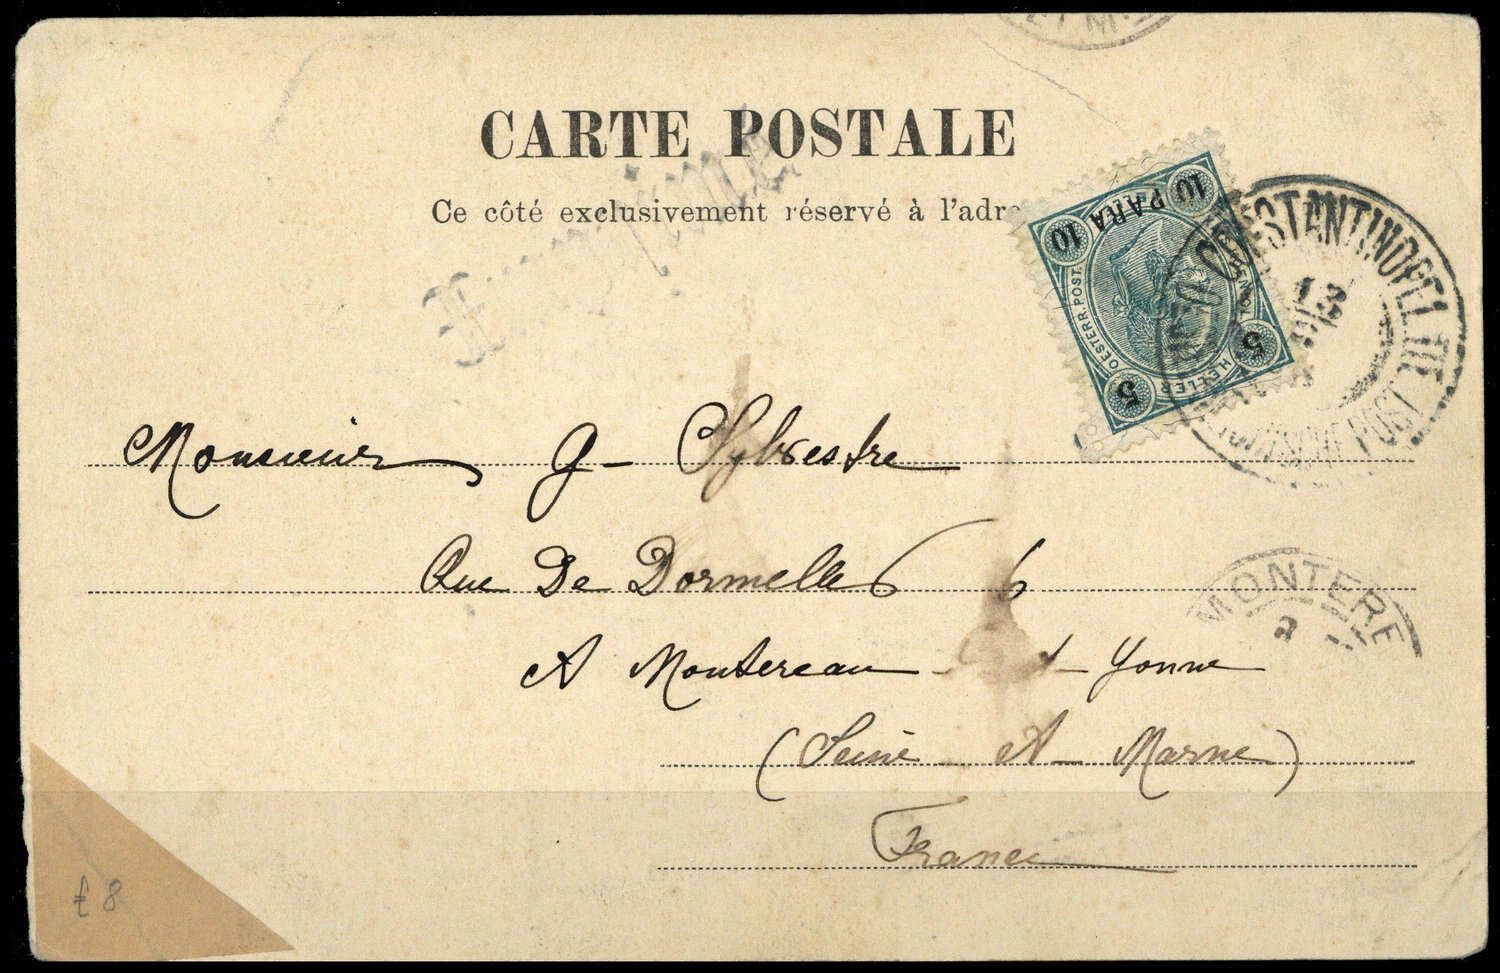 CARTE POSTALE
Ce côté exclusivement réservé à l'adre
Imprimé
10 PARA 10
OESTERR. POST.
5 HELLER 5
CONSTANTINOPEL II
13
Monsieur G- Sylvestre
Rue De Dormelles 6
A Montereau - t - Yonne
(Seine - et - Marne)
France
MONTERE
£ 8